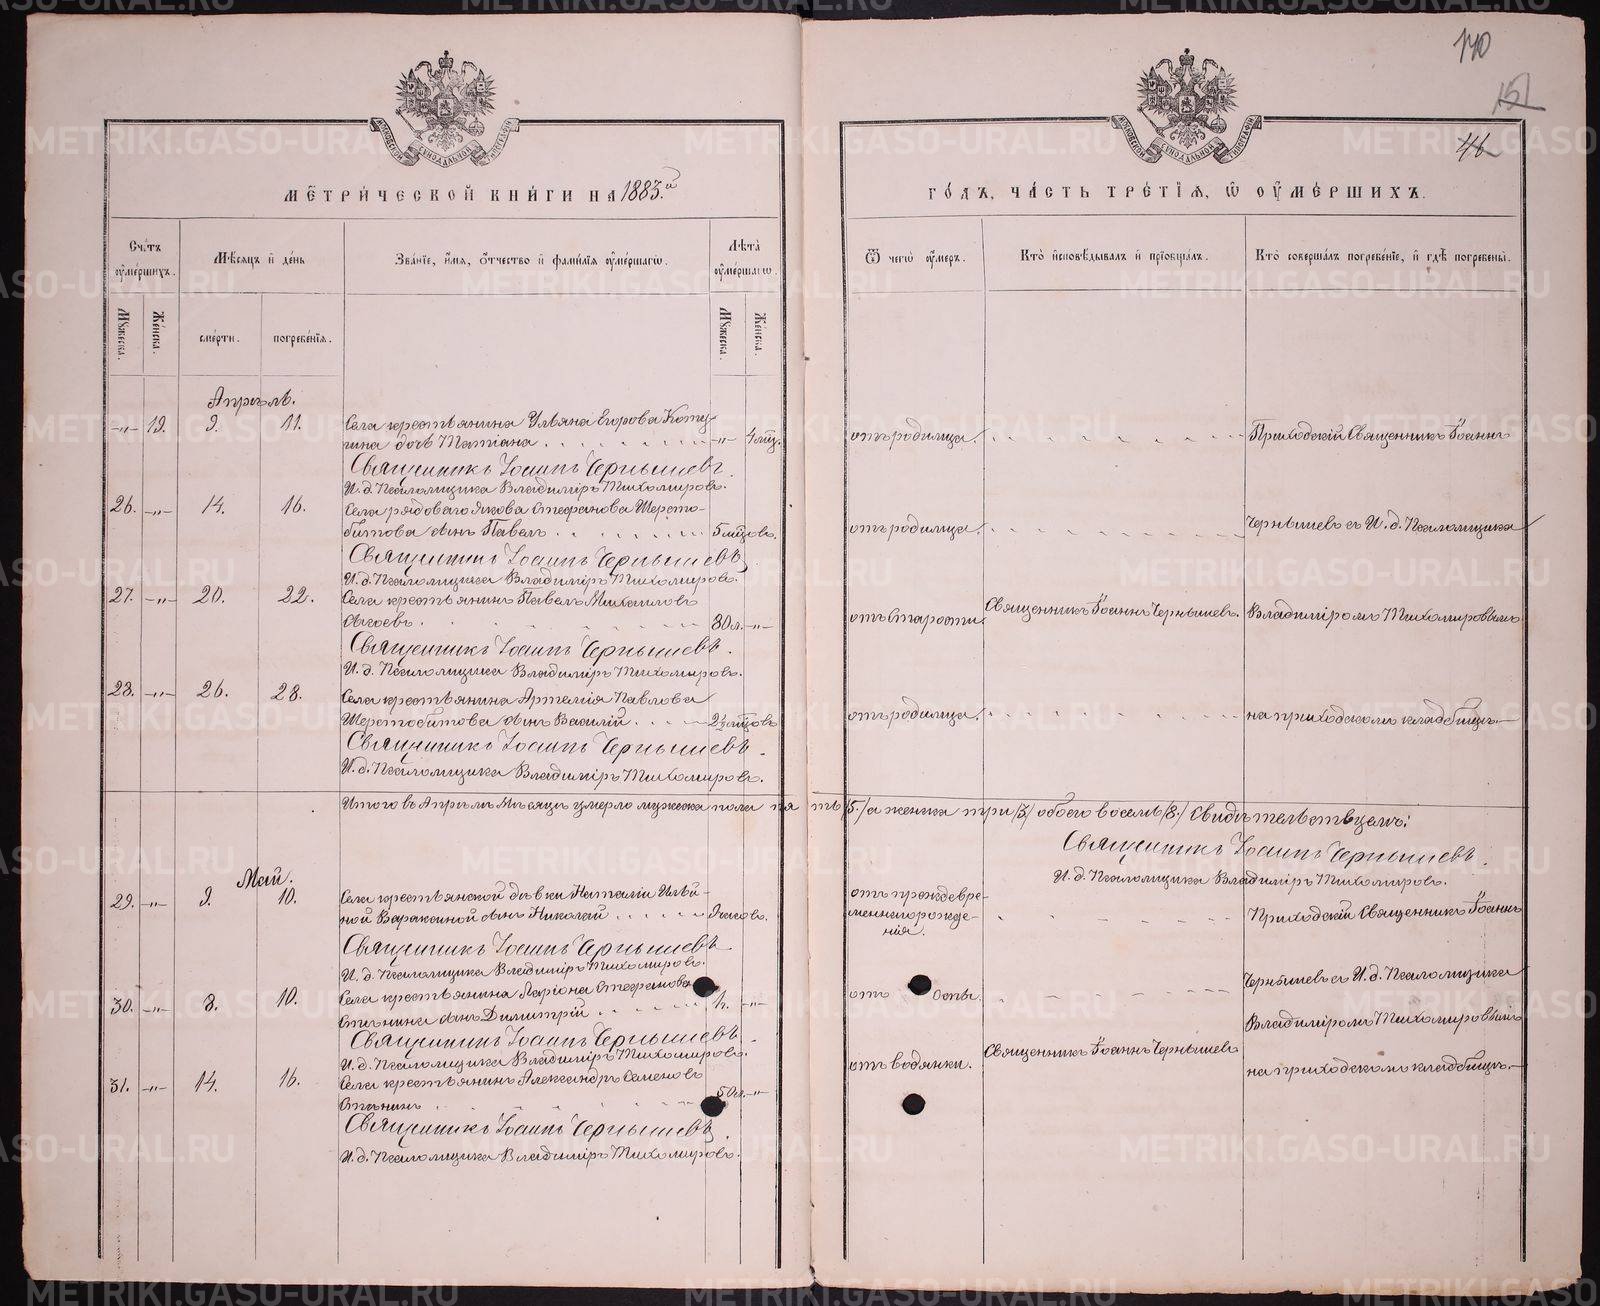 140
151
46
МОСКОВСКОЙ СѴНОДАЛЬНОЙ ТИПОГРАФІИ
МОСКОВСКОЙ СѴНОДАЛЬНОЙ ТИПОГРАФІИ
МЕТРИЧЕСКОЙ КНИГИ НА 1883.й
ГОДЪ, ЧАСТЬ ТРЕТІЯ, Ѿ ОУМЕРШИХЪ.
Счетъ оумершихъ.
Мѣсяцъ и день
Званіе, имя, отчество и фамилія оумершагѡ.
Лѣта оумершагѡ.
Ѿ чегѡ оумеръ.
Кто исповѣдывалъ и пріобщалъ.
Кто совершалъ погребеніе, и гдѣ погребены.
Мꙋжеска.
Женска.
смерти.
погребенія.
Мꙋжеска.
Женска.
Апрѣль.
-„- 19. 9. 11. Села крестьянина Ульяна Егорова Коту-
гина дочь Татіана -„- 4 мѣц. отъ родимца. Приходскій Священникъ Іоаннъ
Священникъ Іоаннъ Чернышевъ
И. д. Псаломщика Владиміръ Тихомировъ.
26. -„- 14. 16. Села рядоваго Якова Стефанова Шерсто-
битова сынъ Павелъ 5 мѣцовъ. отъ родимца. Чернышевъ съ И. д. Псаломщика
Священникъ Іоаннъ Чернышевъ
И. д. Псаломщика Владиміръ Тихомировъ.
27. -„- 20. 22. Села крестьянинъ Павелъ Михаиловъ
80 л. -„- отъ старости. Священникъ Іоаннъ Чернышевъ. Владиміромъ Тихомировымъ
Священникъ Іоаннъ Чернышевъ.
И. д. Псаломщика Владиміръ Тихомировъ.
28. -„- 26. 28. Села крестьянина Артемія Павлова
Шерстобитова сынъ Василій 2½ мѣцовъ отъ родимца. на приходскомъ кладбищѣ.
Священникъ Іоаннъ Чернышевъ.
И. д. Псаломщика Владиміръ Тихомировъ.
Итого въ Апрѣлѣ Мѣсяцѣ умерло мужска пола пять /5./ а женска три /3/ обоего восемь /8./ Свидѣтельствуемъ:
Священникъ Іоаннъ Чернышевъ.
И. д. Псаломщика Владиміръ Тихомировъ.
Май.
29. -„- 9. 10. Села крестьянской дѣвки Наталіи Ильи-
ной Вараксиной сынъ Николай 9 часовъ. отъ преждевре-
меннаго рожде-
нія. Приходскій Священникъ Іоаннъ
Священникъ Іоаннъ Чернышевъ
И. д. Псаломщика Владиміръ Тихомировъ.
30. -„- 8. 10. Села крестьянина Ларіона Стефанова
сынъ Димитрій -„- отъ Оспы. Чернышевъ съ И. д. Псаломщика
Священникъ Іоаннъ Чернышевъ.
И. д. Псаломщика Владиміръ Тихомировъ. Владиміромъ Тихомировымъ
31. -„- 14. 16. Села крестьянинъ Александръ Семеновъ
50 л. -„- отъ водянки. Священникъ Іоаннъ Чернышевъ на приходскомъ кладбищѣ.
Священникъ Іоаннъ Чернышевъ.
И. д. Псаломщика Владиміръ Тихомировъ.
METRIKI.GASO-URAL.RU